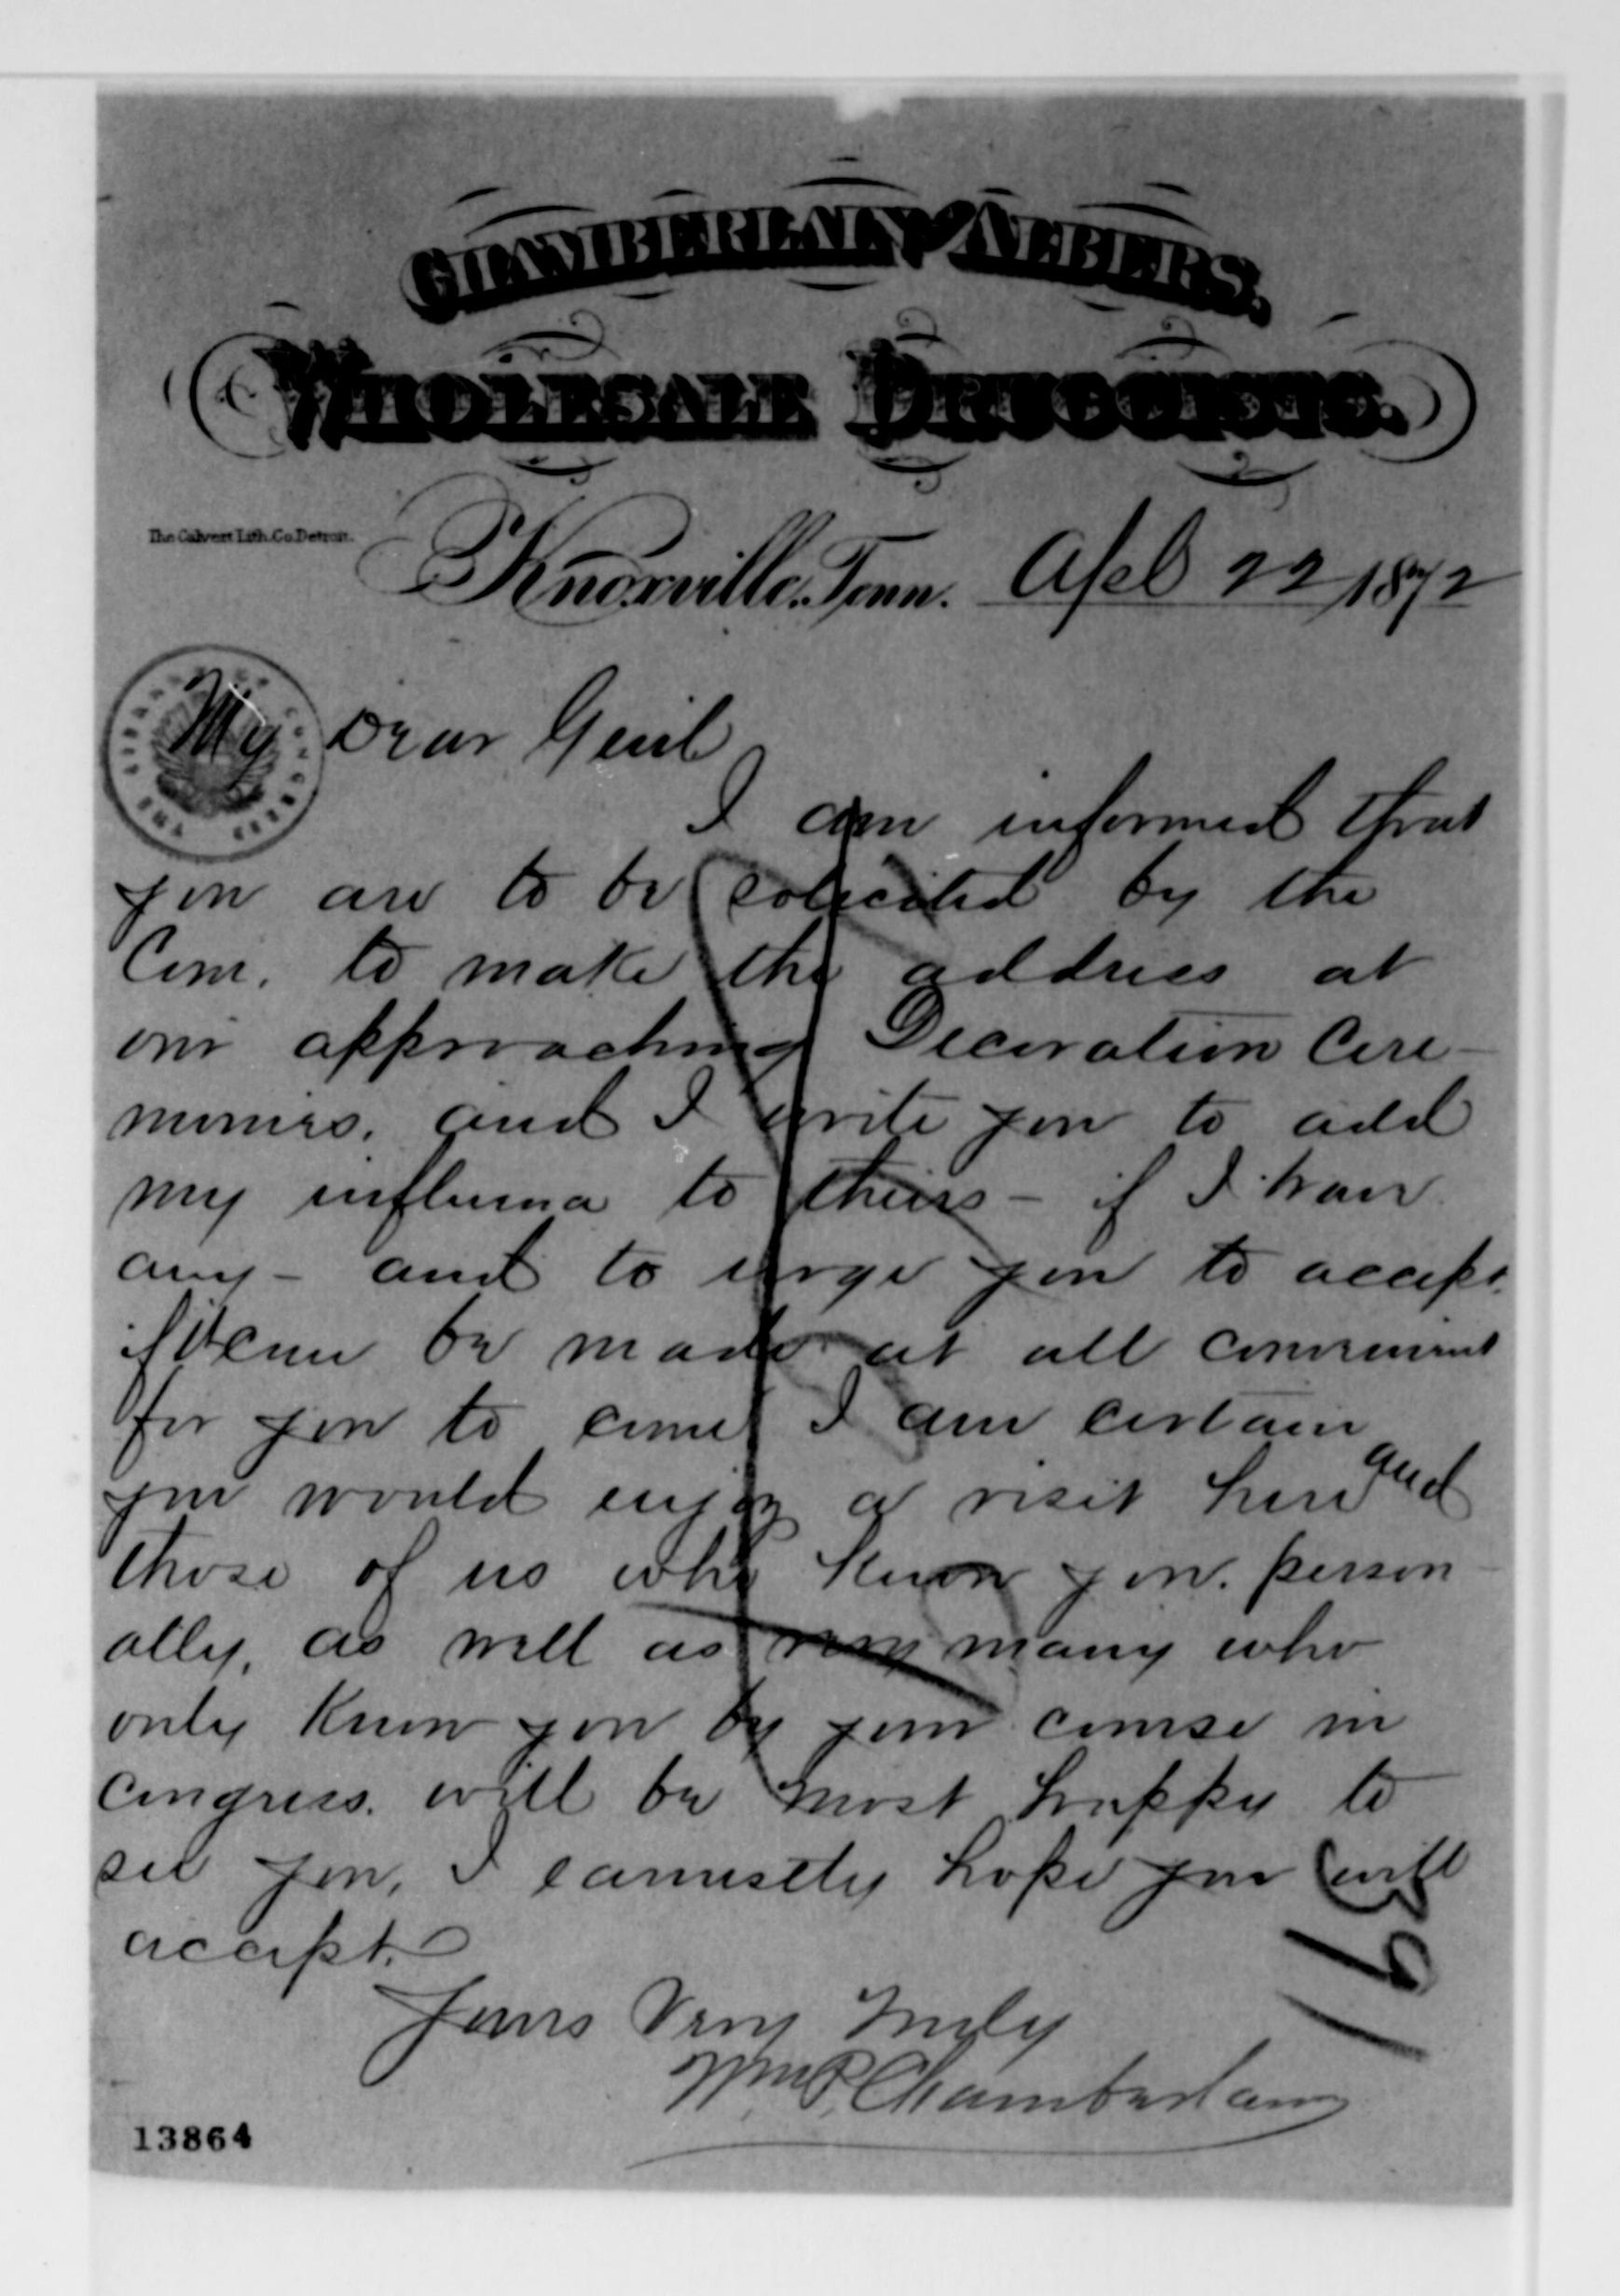 CHAMBERLAIN & ALBERS,
WHOLESALE DRUGGISTS.
The Calvert Lith. Co. Detroit.
Knoxville, Tenn. Apl 22 1872
THE LIBRARY OF CONGRESS
My Dear Genl
I am informed that
you are to be solicited by the
Com. to make the address at
our approaching Decoration Cere-
monies, and I write you to add
my influence to theirs - if I have
any - and to urge you to accept.
if it can be made at all convenient
for you to come I am certain
you would enjoy a visit here and
those of us who know you person-
ally, as well as very many who
only know you by your course in
Congress will be most happy to
see you, I earnestly hope you will
accept.
Yours Very Truly
Wm P. Chamberlain
13864